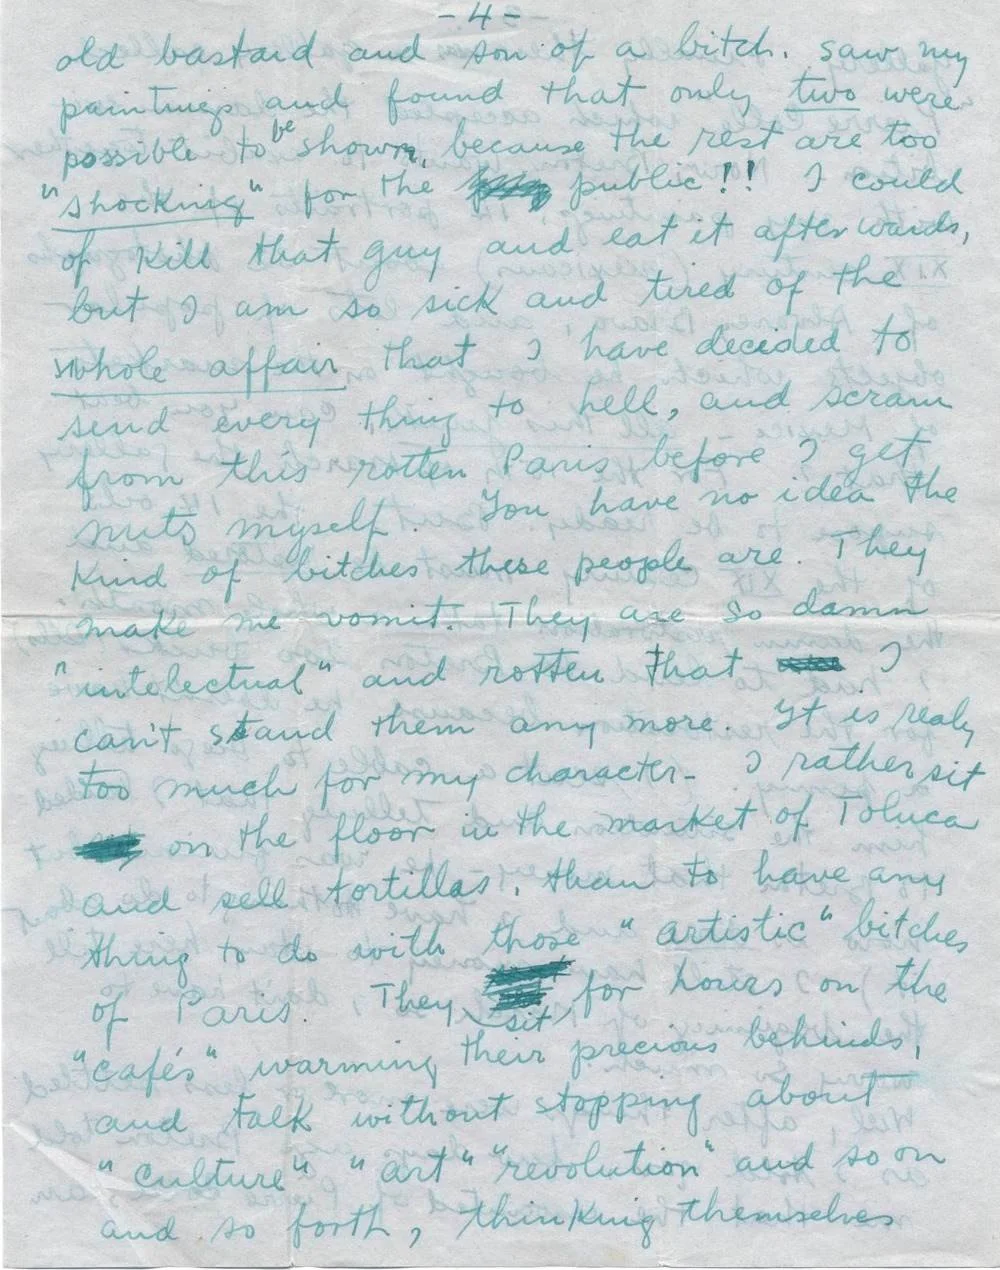 -4-
old bastard and son of a bitch, saw my
paintings and found that only two were
possible to be shown, because the rest are too
"shocking" for the public!! I could
of kill that guy and eat it afterwards,
but I am so sick and tired of the
whole affair that I have decided to
send every thing to hell, and scram
from this rotten Paris before I get
nuts myself. You have no idea the
kind of bitches these people are. They
make me vomit. They are so damn
"intelectual" and rotten that I
can't stand them any more. It is realy
too much for my character- I rather sit
on the floor in the market of Toluca
and sell tortillas, than to have any
thing to do with those "artistic" bitches
of Paris. They sit for hours on the
"cafés" warming their precious behinds,
and talk without stopping about
"culture" "art" "revolution" and so on
and so forth, thinking themselves